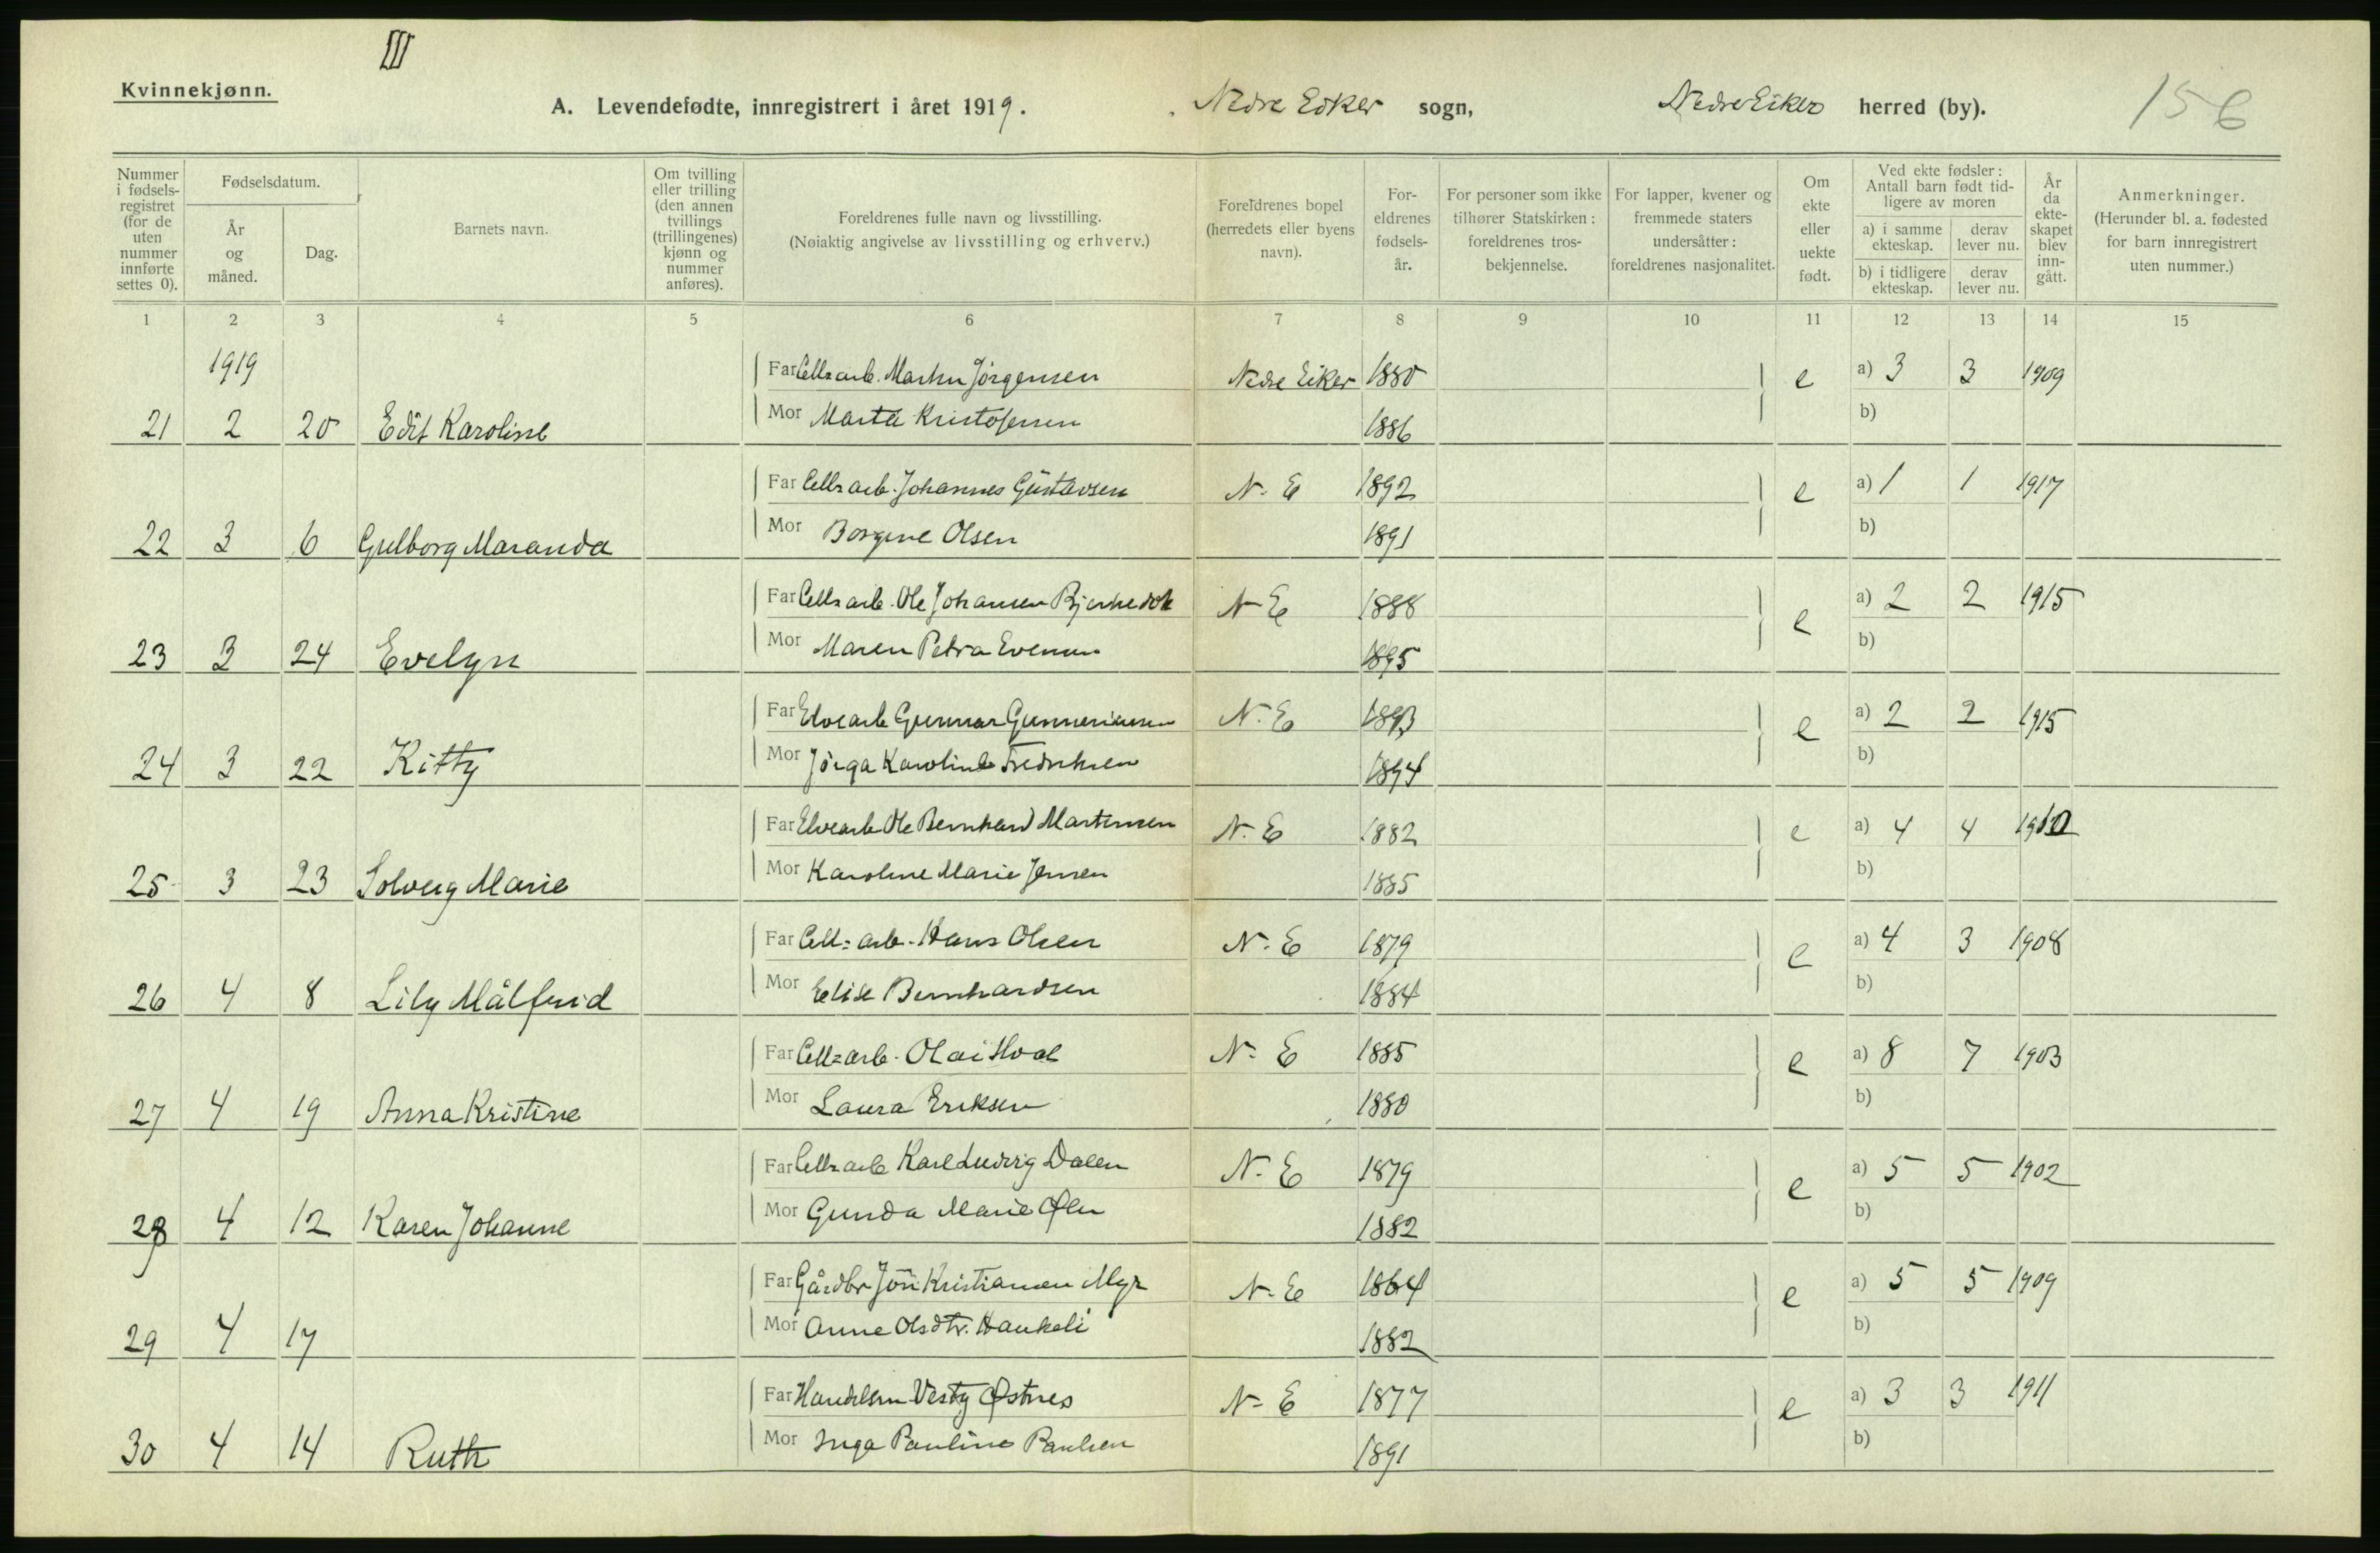 III
Kvinnekjønn.
A. Levendefødte, innregistrert i året 1919. Nedre Eiker sogn, Nedre Eiker herred (by). 156
Nummer i fødselsregistret (for de uten nummer innførte settes 0).
Fødselsdatum.
År og måned.
Dag.
Barnets navn.
Om tvilling eller trilling (den annen tvillings (trillingenes) kjønn og nummer anføres).
Foreldrenes fulle navn og livsstilling.
(Nøiaktig angivelse av livsstilling og erhverv.)
Foreldrenes bopel (herredets eller byens navn).
Foreldrenes fødselsår.
For personer som ikke tilhører Statskirken: foreldrenes trosbekjennelse.
For lapper, kvener og fremmede staters undersåtter: foreldrenes nasjonalitet.
Om ekte eller uekte født.
Ved ekte fødsler: Antall barn født tidligere av moren
a) i samme ekteskap.
derav lever nu.
b) i tidligere ekteskap.
derav lever nu.
År da ekteskapet blev inngått.
Anmerkninger.
(Herunder bl. a. fødested for barn innregistrert uten nummer.)
1 2 3 4 5 6 7 8 9 10 11 12 13 14 15
1919
Far Cells arb. Martin Jörgensen Nedre Eiker 1880 e a) 3 3 1909
21 2 20 Edit Karoline Mor Marta Kristofersen 1886 b)
Far Cells arb. Johannes Gustavsen N. E 1892 e a) 1 1 1917
22 3 6 Gulborg Maranda Mor Borgine Olsen 1891 b)
Far Cells arb. Ole Johansen N E 1888 e a) 2 2 1915
23 3 24 Evelyn Mor Maren Petra Evensen 1895 b)
Far Elvearb Gunnar Gunneriussen N. E 1893 e a) 2 2 1915
24 3 22 Kitty Mor Jörga Karoline Fredriksen 1894 b)
Far Elvearb Ole Bernhard Martinsen N. E 1882 e a) 4 4 1910
25 3 23 Solveig Marie Mor Karoline Marie Jensen 1885 b)
Far Cell= arb. Hans Olsen N. E 1879 e a) 4 3 1908
26 4 8 Lily Målfrid Mor Elise Bernhardsen 1884 b)
Far Cell= arb. Olai Hval N. E 1885 e a) 8 7 1903
27 4 19 Anna Kristine Mor Laura Eriksen 1880 b)
Far Cells arb Karl Ludvig Dalen N. E 1879 e a) 5 5 1902
28 4 12 Karen Johanne Mor Gunda Marie 1882 b)
Far Gårdbr Jön Kristiansen Myr N. E 1864 e a) 5 5 1909
29 4 17 Mor Anne Olsdtr. Haukeli 1882 b)
Far Handelsm Vesty Østnes N- E 1877 e a) 3 3 1911
30 4 14 Ruth Mor Inga Pauline Paulsen 1891 b)